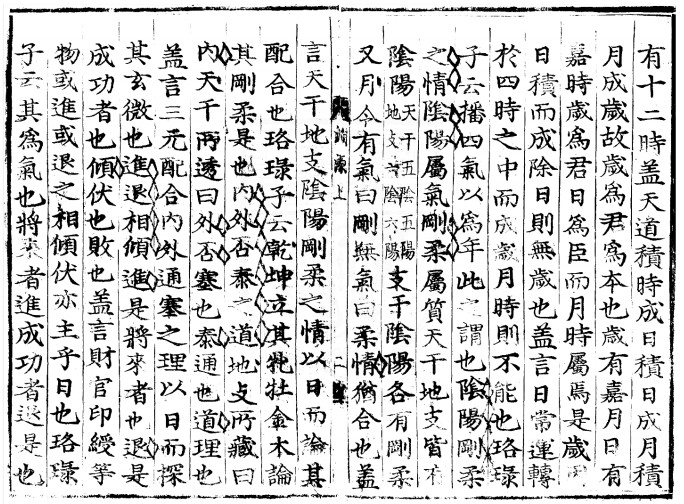 有十二時盖天道積時成日積日成月積
月成歲故歲爲君爲本也歲有嘉月日有
嘉時歲爲君日爲臣而月時屬焉是歲
日積而成除日則無歲也盖言日常運轉
於四時之中而成歲月時則不能也珞琭
子云播四氣以爲年此之謂也隂陽剛柔
之情隂陽屬氣剛柔屬質天干地支皆有
隂陽天干五隂五陽地支六隂六陽支干隂陽各有剛柔
又月令有氣曰剛無氣曰柔情猶合也盖
上
二
言天干地支隂陽剛柔之情以日而論其
配合也珞琭子云乾坤立其牝牡金木論
其剛柔是也内外否泰之道地支所藏曰
内天干所透曰外否塞也泰通也道理也
盖言三元配合内外通塞之理以日而探
其玄微也進退相傾進是將來者也退是
成功者也傾伏也敗也盖言財官印綬等
物或進或退之相傾伏亦主乎日也珞琭
子云其爲氣也將來者進成功者退是也